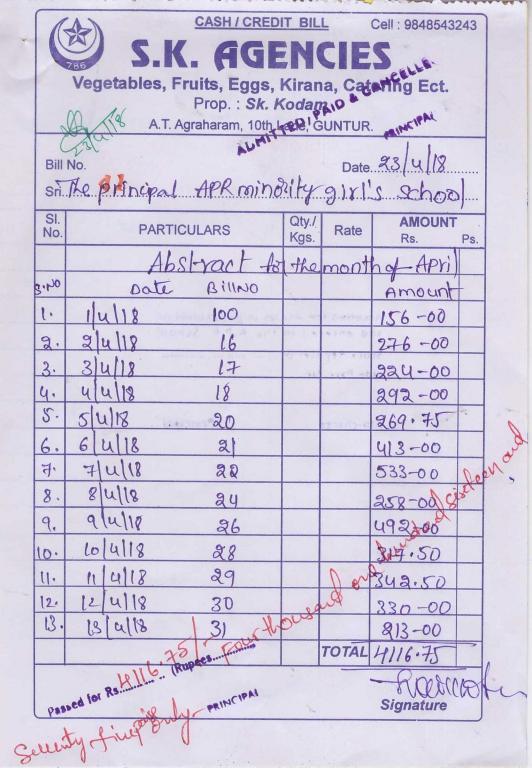 CASH / CREDIT BILL Cell : 9848543243
786
S.K. AGENCIES
Vegetables, Fruits, Eggs, Kirana, Catering Ect.
Prop. : Sk. Kodam
A.T. Agraharam, 10th Lane, GUNTUR.
ADMITTED, PAID & CANCELLE
PRINCIPAL
23/4/18
Bill No. Date 23/4/18
Sri The principal APR minority girl's school
Sl. No. PARTICULARS Qty./ Kgs. Rate AMOUNT Rs. Ps.
Abstract for the month of April
S.NO Date BillNO Amount
1. 1/4/18 100 156-00
2. 2/4/18 16 276-00
3. 3/4/18 17 224-00
4. 4/4/18 18 292-00
5. 5/4/18 20 269.75
6. 6/4/18 21 413-00
7. 7/4/18 22 533-00
8. 8/4/18 24 258-00
9. 9/4/18 26 492-00
10. 10/4/18 28 317.50
11. 11/4/18 29 342.50
12. 12/4/18 30 330-00
13. 13/4/18 31 213-00
TOTAL 4116.75
Passed for Rs. 4116.75/- (Rupees Four thousand one hundred sixteen and
Seventy five paise only
PRINCIPAL
Signature